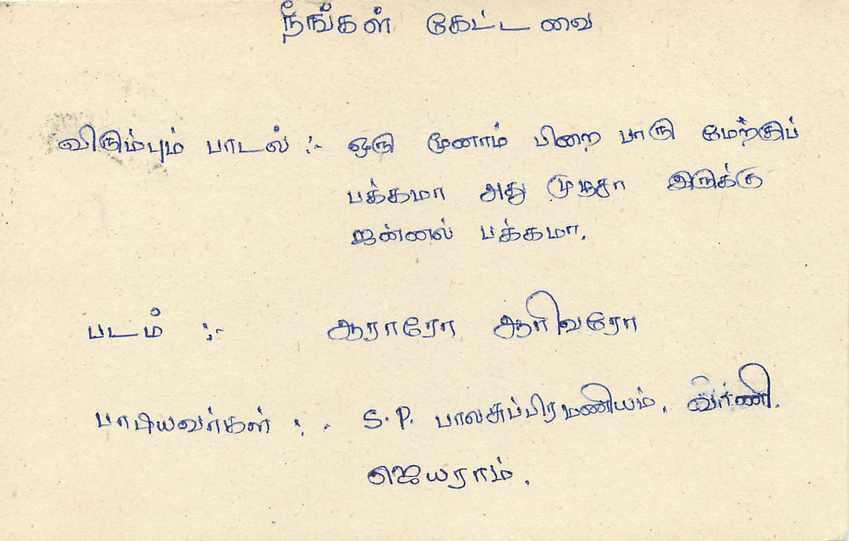 நீங்கள் கேட்டவை
விரும்பும் பாடல் :- ஒரு மூனாம் பிறை பாரு மேற்குப்
பக்கமா அது முழுசா இருக்கு
ஜன்னல் பக்கமா.
படம் :- ஆராரோ ஆரிவரோ
பாடியவர்கள் :- S.P. பாலசுப்பிரமணியம்,
ஜெயராம்.